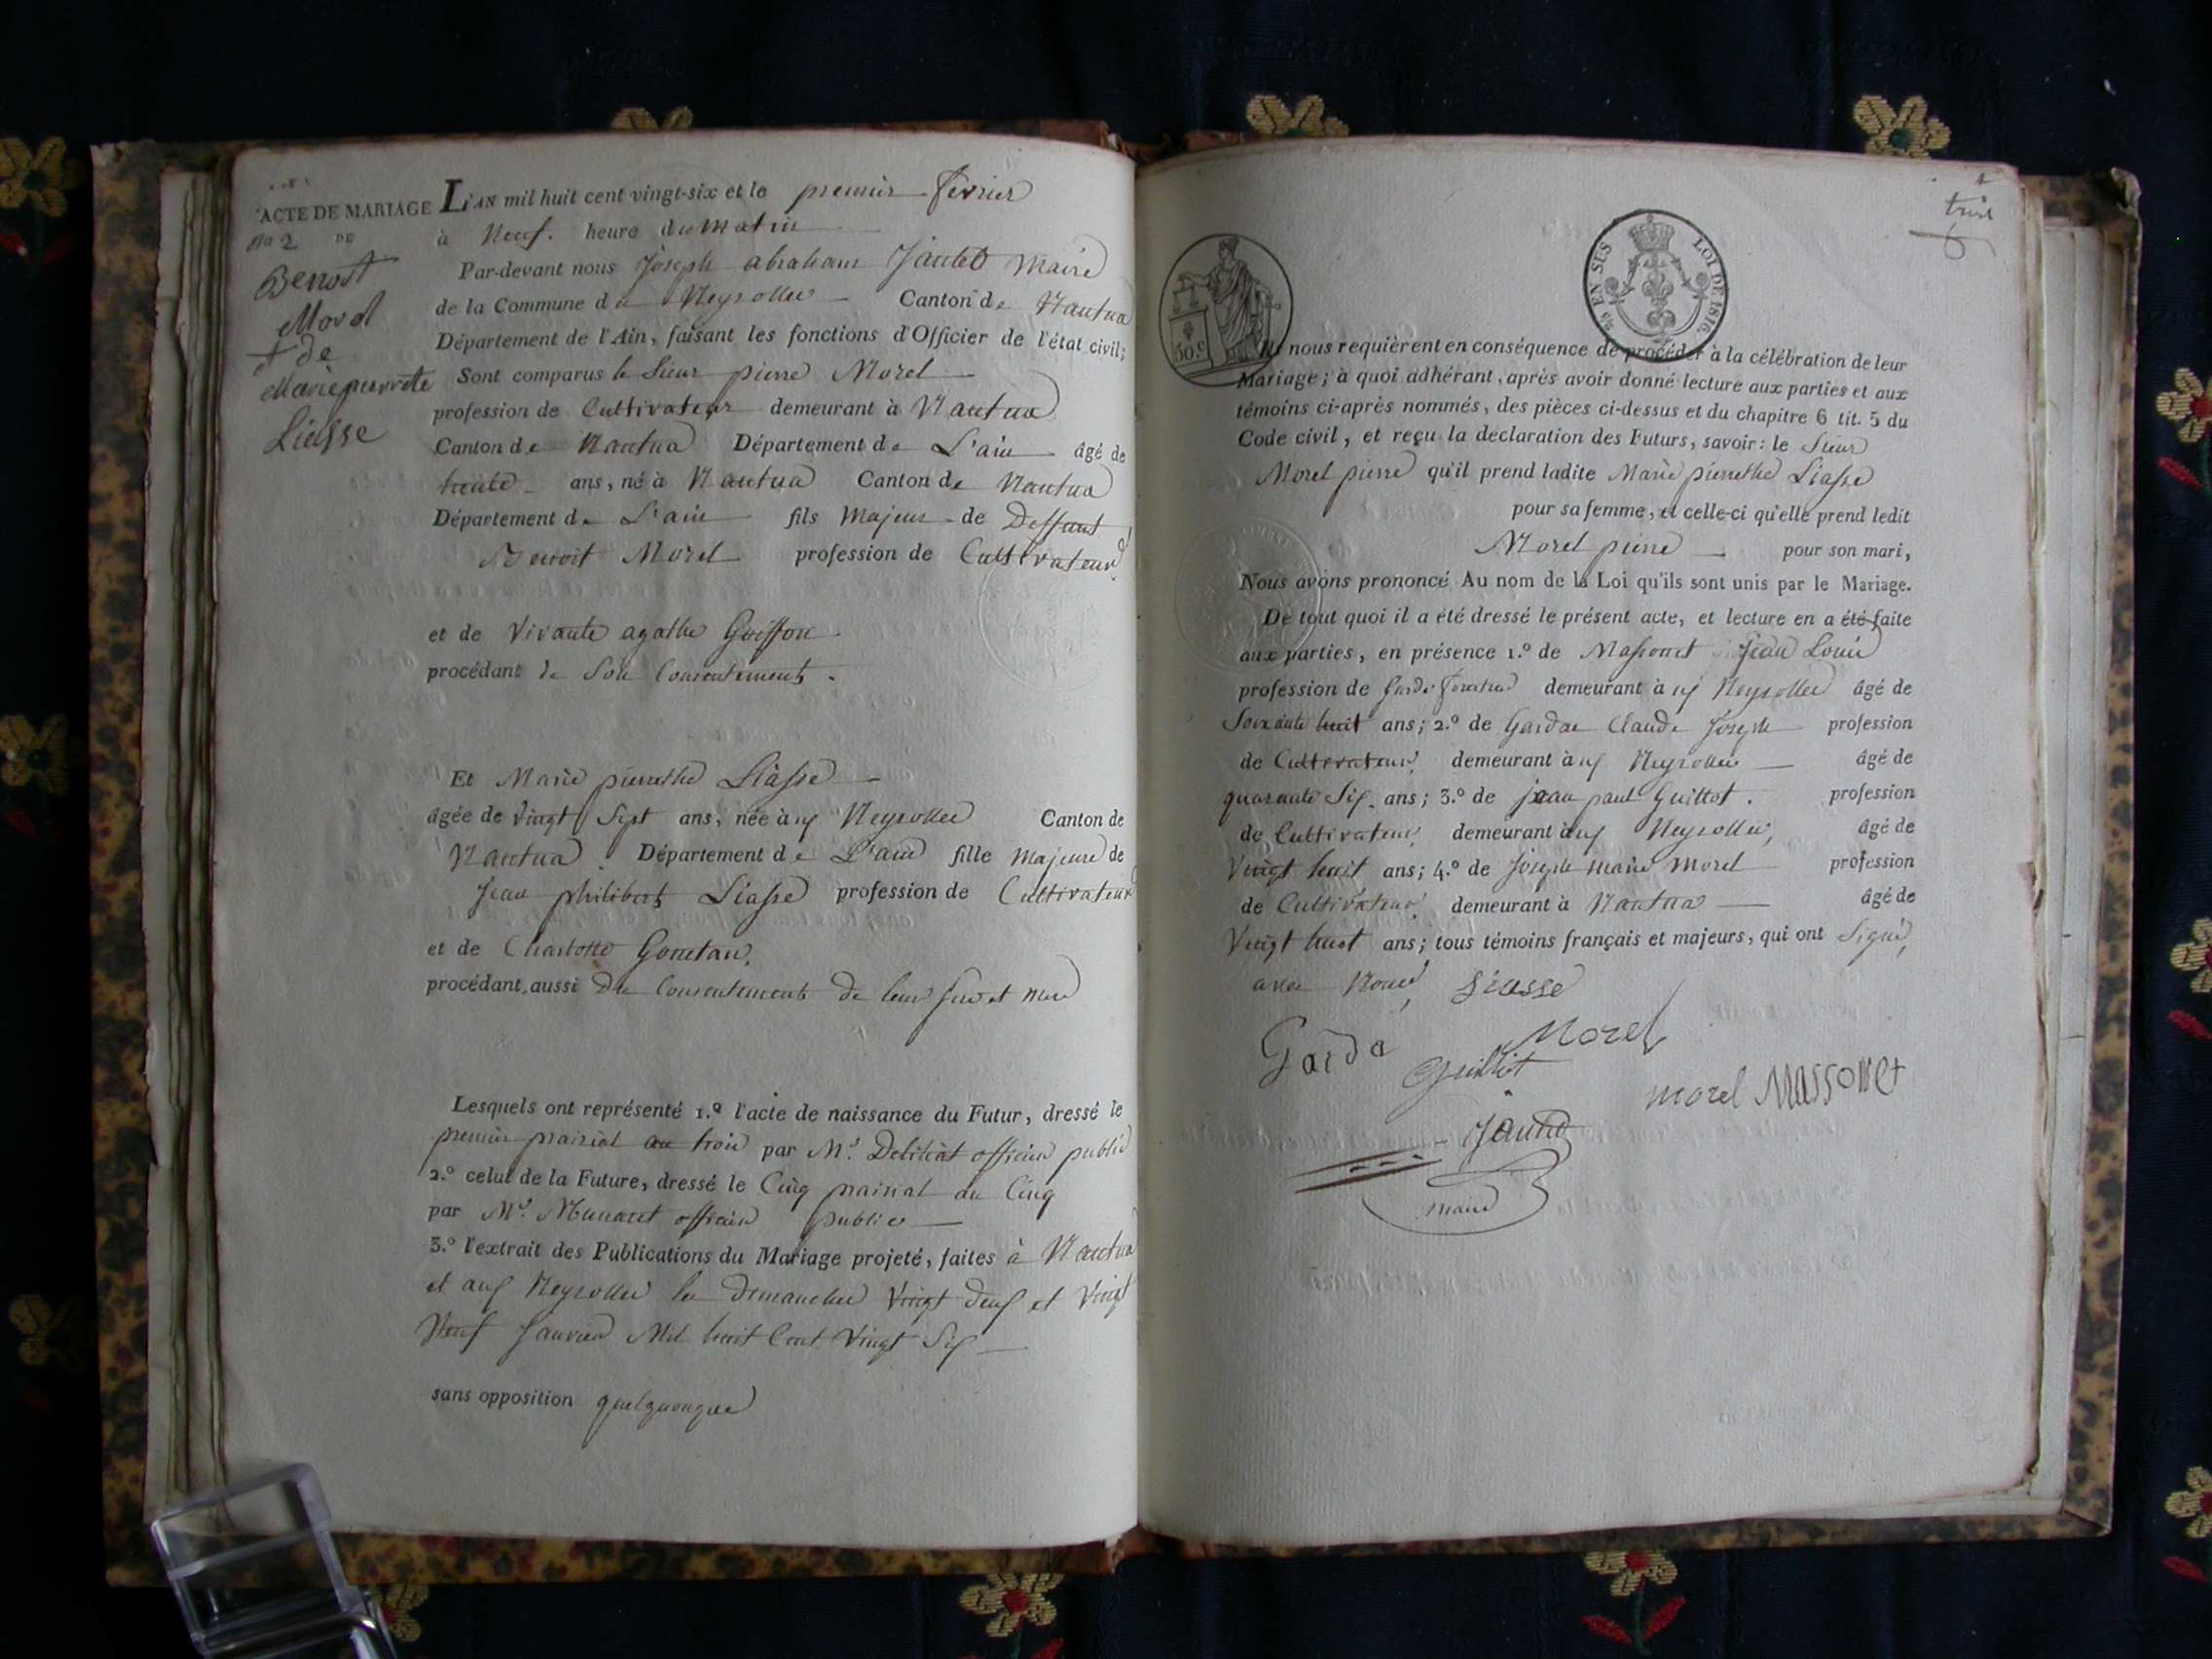 ACTE DE MARIAGE
No 2 DE
Benoit
Morel
+ de
Marie pierrette
Liasse
L'AN mil huit cent vingt-six et le premier fevrier
à Neuf heure du matin
Par-devant nous Joseph abraham Maire
de la Commune de Neyrolles Canton de Nantua
Département de l'Ain, faisant les fonctions d'Officier de l'état civil;
Sont comparus le Sieur pierre Morel
profession de Cultivateur demeurant à Nantua
Canton de Nantua Département de L'ain âgé de
trente ans, né à Nantua Canton de Nantua
Département de L'ain fils Majeur de Deffunt
Benoit Morel profession de Cultivateur
et de Vivante agathe Goiffon
procédant de Son Consentement.
Et Marie pierrethe Liasse
âgée de Vingt Sept ans, née à Neyrolles Canton de
Nantua Département de L'ain fille Majeure de
Jean philibert Liasse profession de Cultivateur
et de Charlotte
procédant aussi Du Consentement de leur et mere
Lesquels ont représenté 1.º l'acte de naissance du Futur, dressé le
premier prairial an trois par Mr. officier public
2.º celui de la Future, dressé le Cinq prairial an Cinq
par Mr. officier public
3.º l'extrait des Publications du Mariage projeté, faites à Nantua
et aux Neyrolles les dimanches Vingt deux et Vingt
Neuf Janvier Mil huit Cent Vingt Six
sans opposition quelquonque
50.c
c.es EN SUS LOI DE 1816.
trois
Ils nous requièrent en conséquence de procéder à la célébration de leur
Mariage; à quoi adhérant, après avoir donné lecture aux parties et aux
témoins ci-après nommés, des pièces ci-dessus et du chapitre 6 tit. 5 du
Code civil, et reçu la declaration des Futurs, savoir: le Sieur
Morel pierre qu'il prend ladite Marie pierrethe Liasse
pour sa femme, et celle-ci qu'elle prend ledit
Morel pierre pour son mari,
Nous avons prononcé Au nom de la Loi qu'ils sont unis par le Mariage.
De tout quoi il a été dressé le présent acte, et lecture en a été faite
aux parties, en présence 1.º de Massonnet Jean Louis
profession de garde forestier demeurant à ux Neyrolles âgé de
Soixante huit ans; 2.º de Gardae Claude Joseph profession
de Cultivateur demeurant à ux Neyrolles âgé de
quarante Six ans; 3.º de jean paul Guittot. profession
de Cultivateur demeurant à ux Neyrolles, âgé de
Vingt huit ans; 4.º de Joseph marie Morel profession
de Cultivateur demeurant à Nantua âgé de
Vingt huit ans; tous témoins français et majeurs, qui ont Signé,
avec Nous, Liasse
Morel
Garda
Guittot
morel Massonet
maire